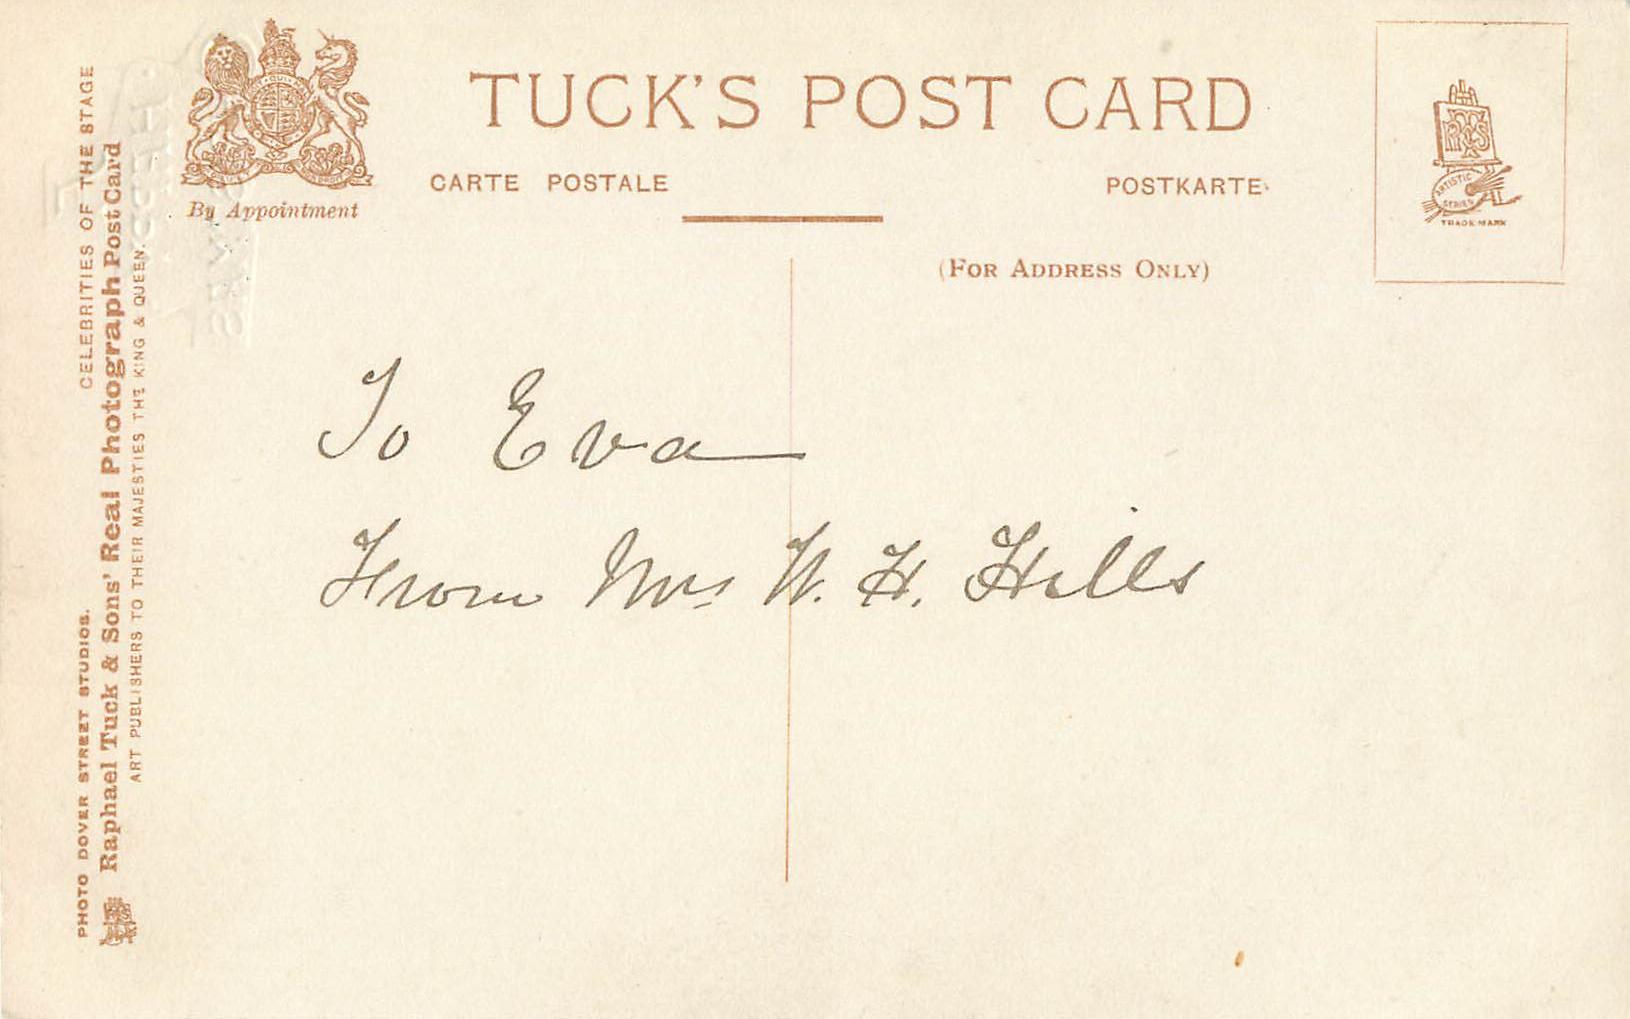 TUCK'S POST CARD
CARTE POSTALE
POSTKARTE
By Appointment
(FOR ADDRESS ONLY)
ARTISTIC
SERIES
TRADE MARK
To Eva
From Mrs W. H. Hills
PHOTO DOVER STREET STUDIOS. CELEBRITIES OF THE STAGE
Raphael Tuck & Sons' Real Photograph Post Card
ART PUBLISHERS TO THEIR MAJESTIES THE KING & QUEEN.